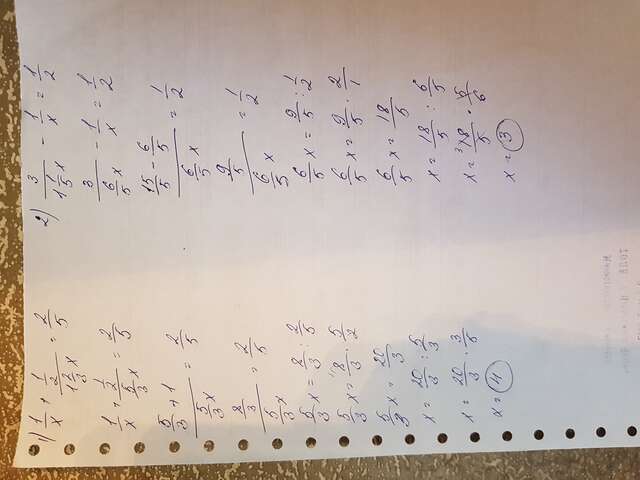 1) 1/x + (1/2)/(1 2/3 x) = 2/5
1/x + (1/2)/(5/3 x) = 2/5
(5/3 + 1)/(5/3 x) = 2/5
(8/3)/(5/3 x) = 2/5
5/3 x = 8/3 : 2/5
5/3 x = 8/3 · 5/2
5/3 x = 20/3
x = 20/3 : 5/3
x = 20/3 · 3/5
x = 4
2) 3/(1 1/5 x) - 1/x = 1/2
3/(6/5 x) - 1/x = 1/2
(15/5 - 6/5)/(6/5 x) = 1/2
(9/5)/(6/5 x) = 1/2
6/5 x = 9/5 : 1/2
6/5 x = 9/5 · 2/1
6/5 x = 18/5
x = 18/5 : 6/5
x = ³18/5 · 5/6
x = 3